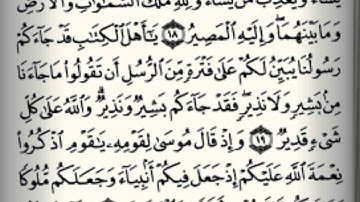 يَشَآءُ وَيُعَذِّبُ مَن يَشَآءُ ۚ وَلِلَّهِ مُلْكُ ٱلسَّمَٰوَٰتِ وَٱلْأَرْضِ
وَمَا بَيْنَهُمَا ۖ وَإِلَيْهِ ٱلْمَصِيرُ ١٨ يَٰٓأَهْلَ ٱلْكِتَٰبِ قَدْ جَآءَكُمْ
رَسُولُنَا يُبَيِّنُ لَكُمْ عَلَىٰ فَتْرَةٍ مِّنَ ٱلرُّسُلِ أَن تَقُولُوا۟ مَا جَآءَنَا
مِنۢ بَشِيرٍ وَلَا نَذِيرٍ ۖ فَقَدْ جَآءَكُم بَشِيرٌ وَنَذِيرٌ ۗ وَٱللَّهُ عَلَىٰ كُلِّ
شَىْءٍ قَدِيرٌ ١٩ وَإِذْ قَالَ مُوسَىٰ لِقَوْمِهِۦ يَٰقَوْمِ ٱذْكُرُوا۟
نِعْمَةَ ٱللَّهِ عَلَيْكُمْ إِذْ جَعَلَ فِيكُمْ أَنۢبِيَآءَ وَجَعَلَكُم مُّلُوكًا